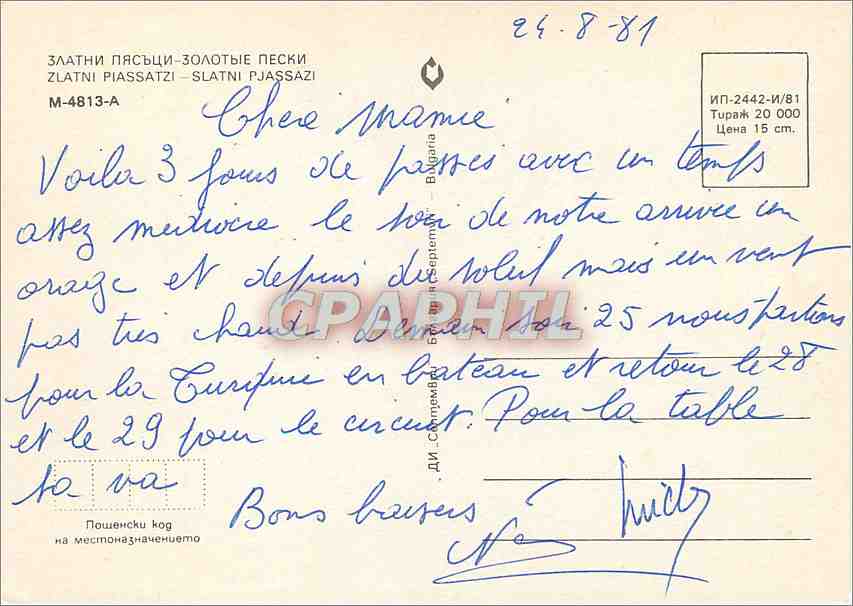 24-8-81
ЗЛАТНИ ПЯСЪЦИ-ЗОЛОТЫЕ ПЕСКИ
ZLATNI PIASSATZI - SLATNI PJASSAZI
М-4813-А
ИП-2442-И/81
Тираж 20 000
Цена 15 ст.
Chere Mamie
Voila 3 jours de passés avec un temps
assez mediocre le soir de notre arrivée un
orage et depuis du soleil mais un vent
pas très chaud. Demain soir 25 nous partons
pour la Turquie en bateau et retour le 28
et le 29 pour le circuit. Pour la table
sa va
Bons baisers
ДИ „Септември" България „Septemvri" – Bulgaria
CPAPHIL
Пощенски код
на местоназначението